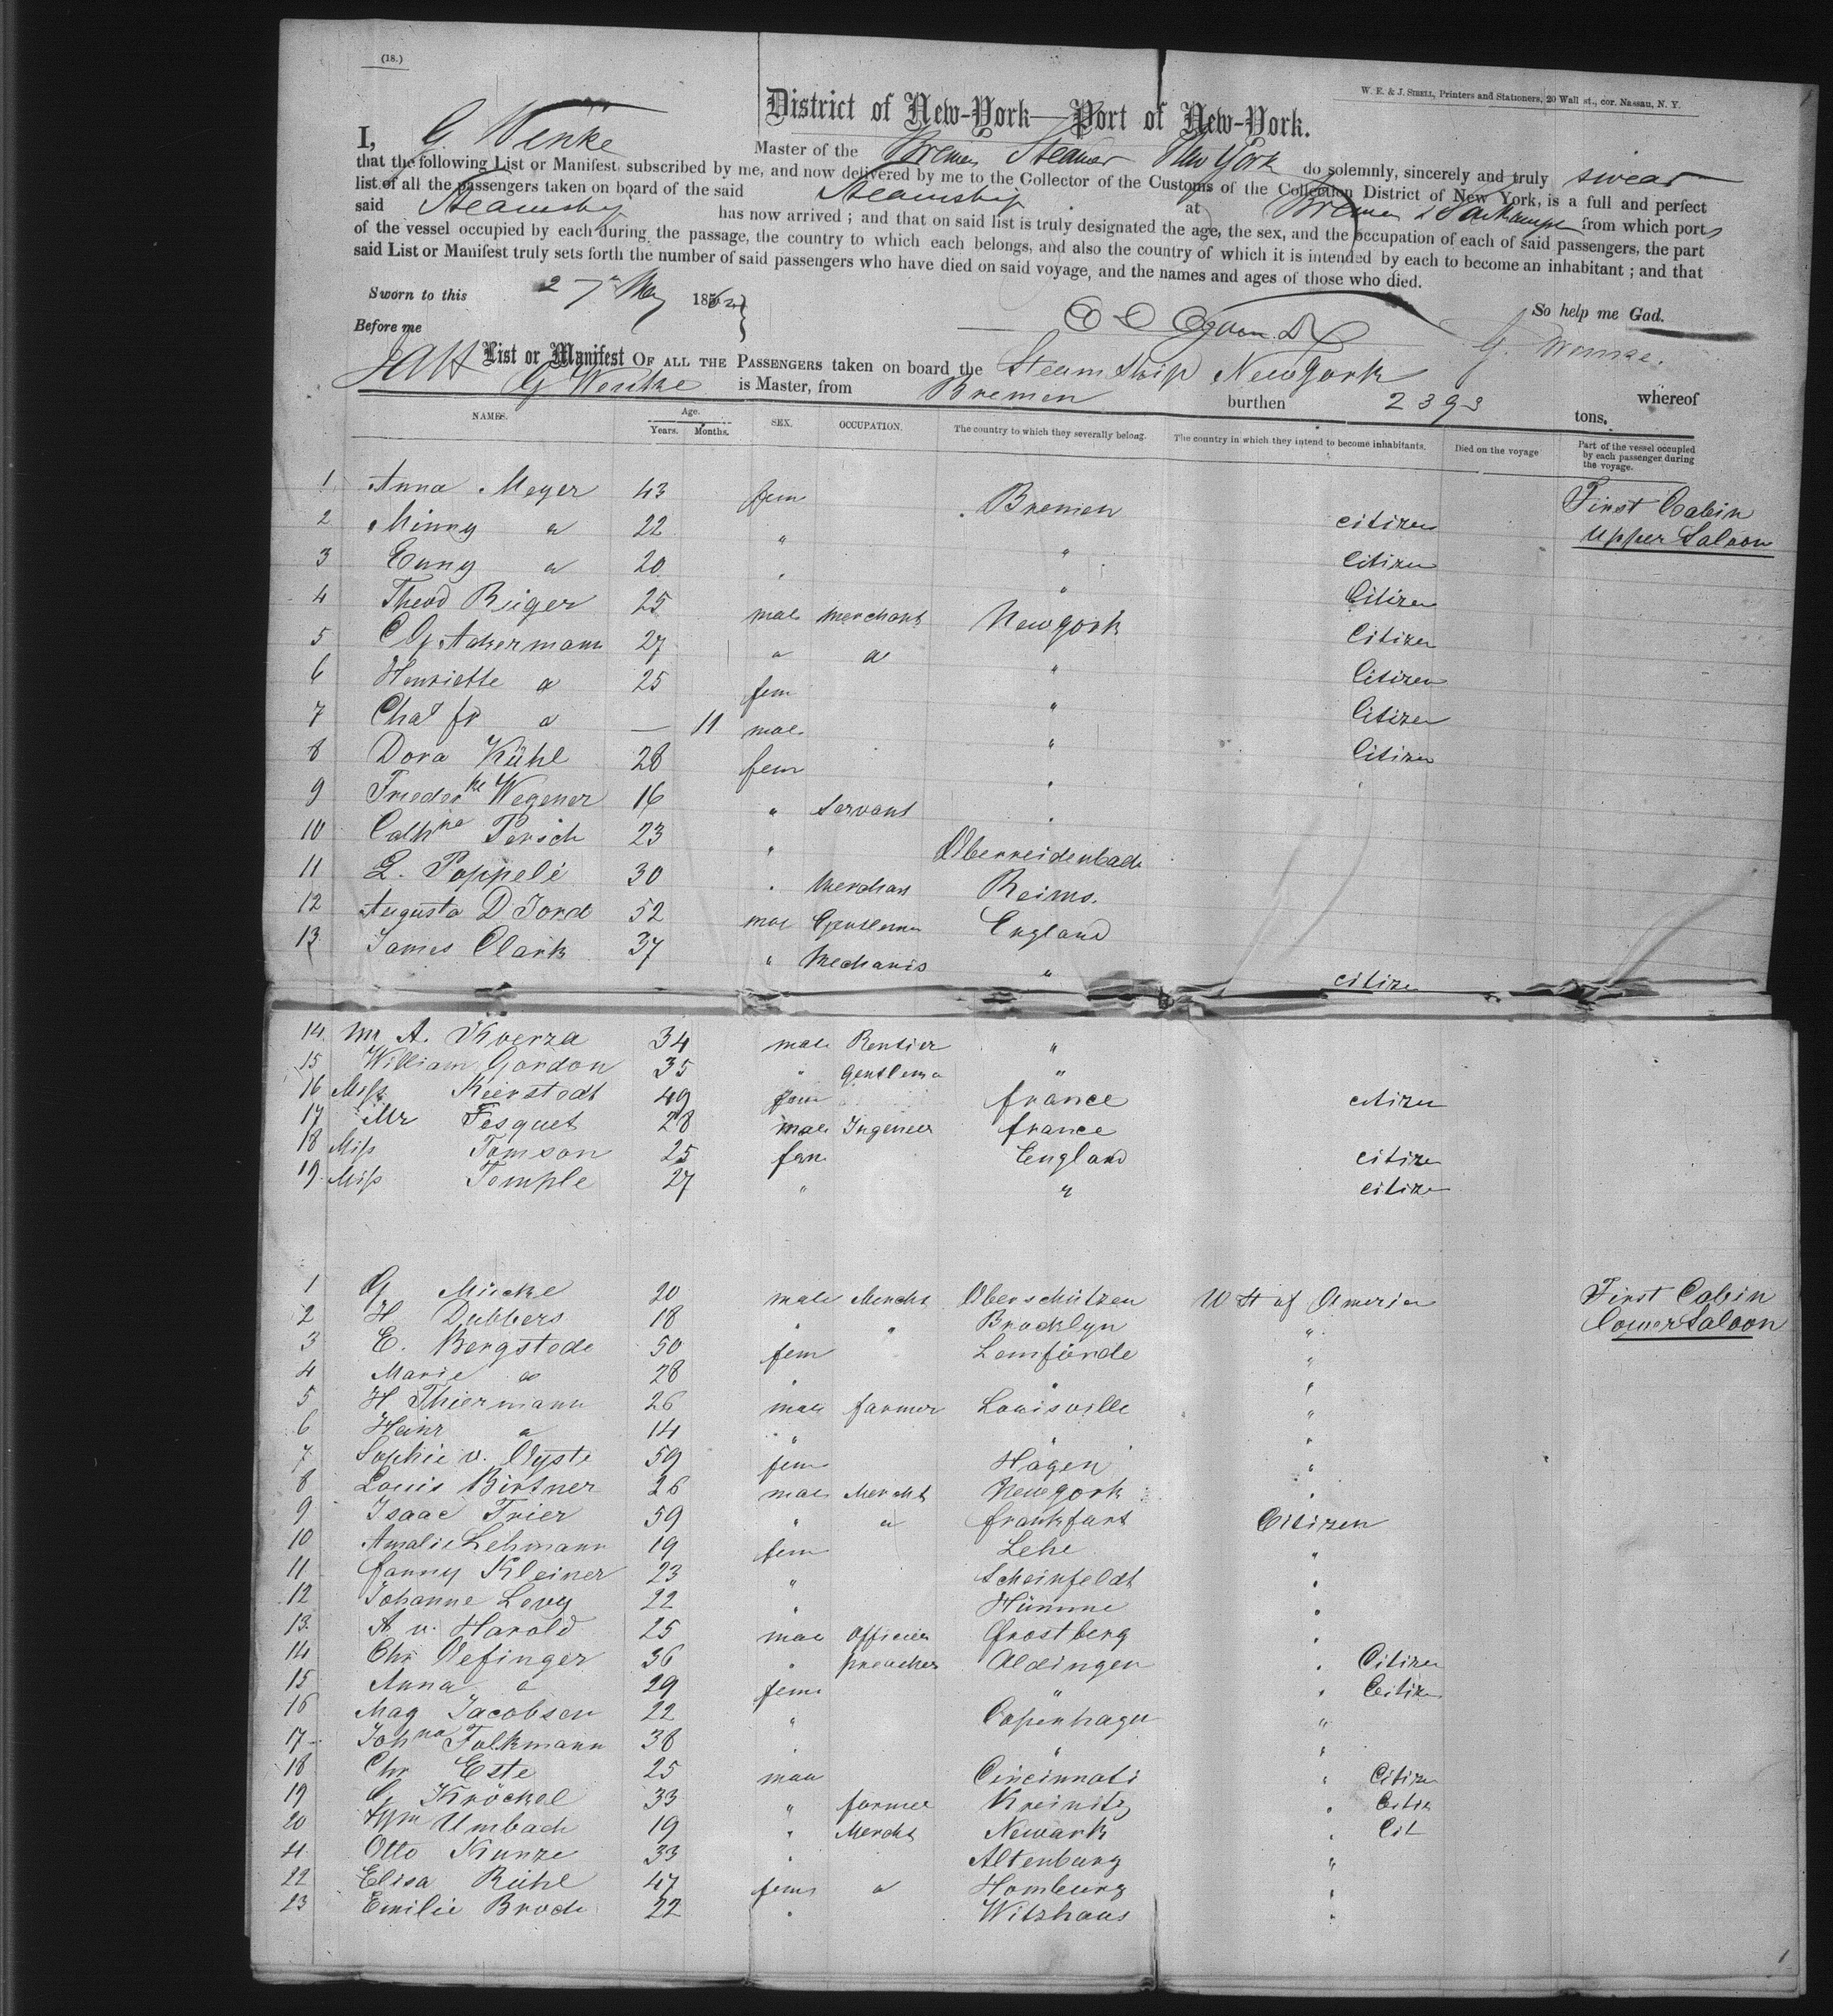 (18.)
W. E. & J. SIBELL, Printers and Stationers, 20 Wall st., cor. Nassau, N. Y.
District of New-York—Port of New-York.
I, G. Wenke Master of the Bremen Steamer New York do solemnly, sincerely and truly swear
that the following List or Manifest subscribed by me, and now delivered by me to the Collector of the Customs of the Collection District of New York, is a full and perfect
list of all the passengers taken on board of the said Steamship at Bremen & from which port
said Steamship has now arrived ; and that on said list is truly designated the age, the sex, and the occupation of each of said passengers, the part
of the vessel occupied by each during the passage, the country to which each belongs, and also the country of which it is intended by each to become an inhabitant ; and that
said List or Manifest truly sets forth the number of said passengers who have died on said voyage, and the names and ages of those who died.
Sworn to this 27 May 1862
So help me God.
Before me G. Wenke.
List or Manifest OF ALL THE PASSENGERS taken on board the Steam Ship New York whereof
G Wenke is Master, from Bremen burthen 2393 tons.
NAMES. Age. Years. Months. SEX. OCCUPATION. The country to which they severally belong. The country in which they intend to become inhabitants. Died on the voyage Part of the vessel occupied by each passenger during the voyage.
1 Anna Meyer 43 fem Bremen citizen First Cabin
2 Minny " 22 " " Citizen Upper Saloon
3 Enny " 20 " " Citizen
4 Theod Rüger 25 male Merchant New York Citizen
5 C G Ackermann 27 " " " Citizen
6 Henriette " 25 fem " Citizen
7 Chas jr " — 11 male " Citizen
8 Dora Kühl 28 fem "
9 Friederke Wegener 16 " Servant "
10 Cathna Persch 23 " Oberreidenbach
11 L. Poppele 30 " Merchant Reims.
12 Augusta D Jord 52 male Gentleman England
13 James Clark 37 " Mechanic " citizen
14. Mr A. Kverza 34 male Rentier "
15 William Gordon 35 " Gentleman "
16 Miss Kierstedt 49 fem france citizen
17 Mr Fesquet 28 male Ingenieur france
18 Miss Tomson 25 fem England citizen
19. Miss Temple 27 " " citizen
1 G Mücke 20 male Mercht Oberschützen U St of America First Cabin
2 H Dubbers 18 " " Brooklyn " Lower Saloon
3 E. Bergstede 50 fem Lemförde "
4 Marie " 28 " " "
5 H Thiermann 26 male farmer Louisville "
6 Heinr " 14 " " "
7 Sophie v. Oyste 59 fem Hagen "
8 Louis Birtner 26 male Mercht New York "
9 Isaac Trier 59 " " frankfurt Citizen
10 Amalie Lehmann 19 fem Lehe "
11 fanny Kleiner 23 " Scheinfeldt "
12 Johanne Levy 22 " Hümme "
13. A v. Harold 25 male Officier frostberg "
14 Chr Oefinger 36 " preacher Aldingen " Citizen
15 Anna " 29 fem " " Citizen
16 Mag Jacobsen 22 " Copenhagen "
17 Johna Falkmann 38 " " "
18 Chr Este 25 male Cincinnati " Citizen
19 C. Kröckel 33 " farmer Kreinitz " Citiz
20 Wm Umbach 19 " Mercht Newark " Cit
21 Otto Kunze 33 " Altenburg "
22 Elisa Rühl 47 fem " Homburg "
23 Emilie Brode 22 " Witzhaus "
1